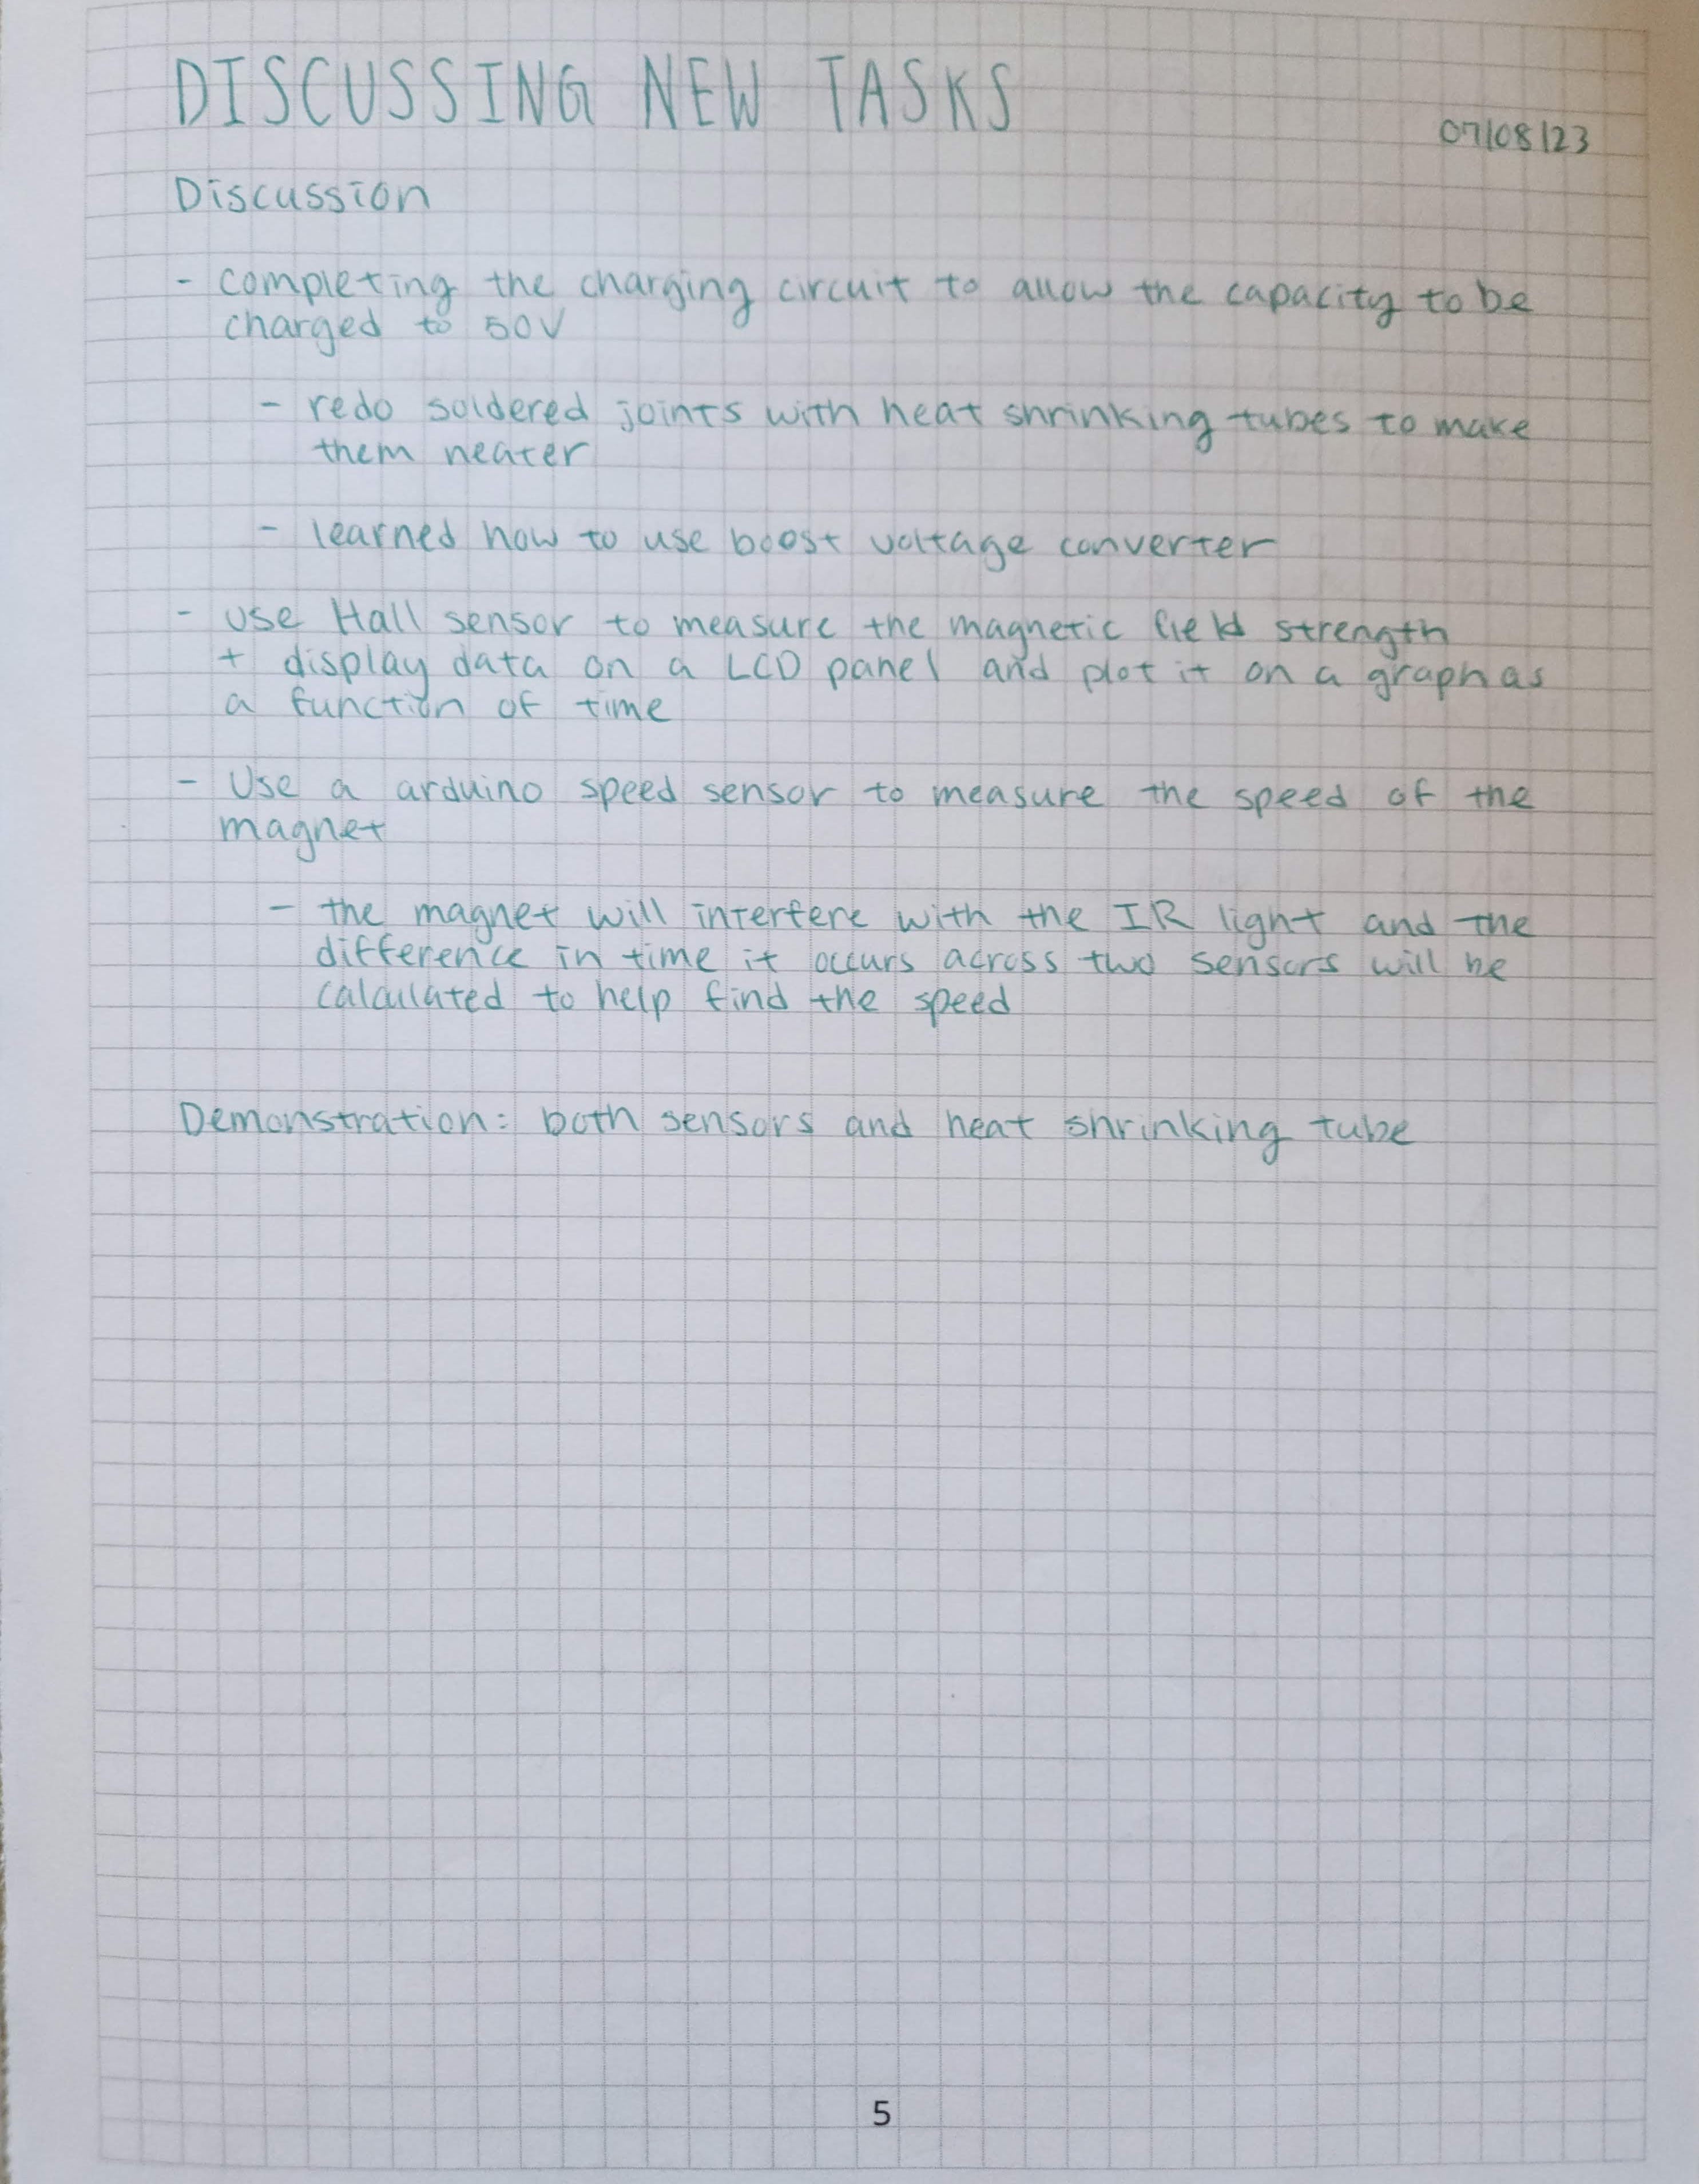 DISCUSSING NEW TASKS
07/08/23
Discussion
- completing the charging circuit to allow the capacity to be
charged to 50V
- redo soldered joints with heat shrinking tubes to make
them neater
- learned how to use boost voltage converter
- use Hall sensor to measure the magnetic field strength
+ display data on a LCD panel and plot it on a graph as
a function of time
- Use a arduino speed sensor to measure the speed of the
magnet
- the magnet will interfere with the IR light and the
difference in time it occurs across two sensors will be
calculated to help find the speed
Demonstration: both sensors and heat shrinking tube
5